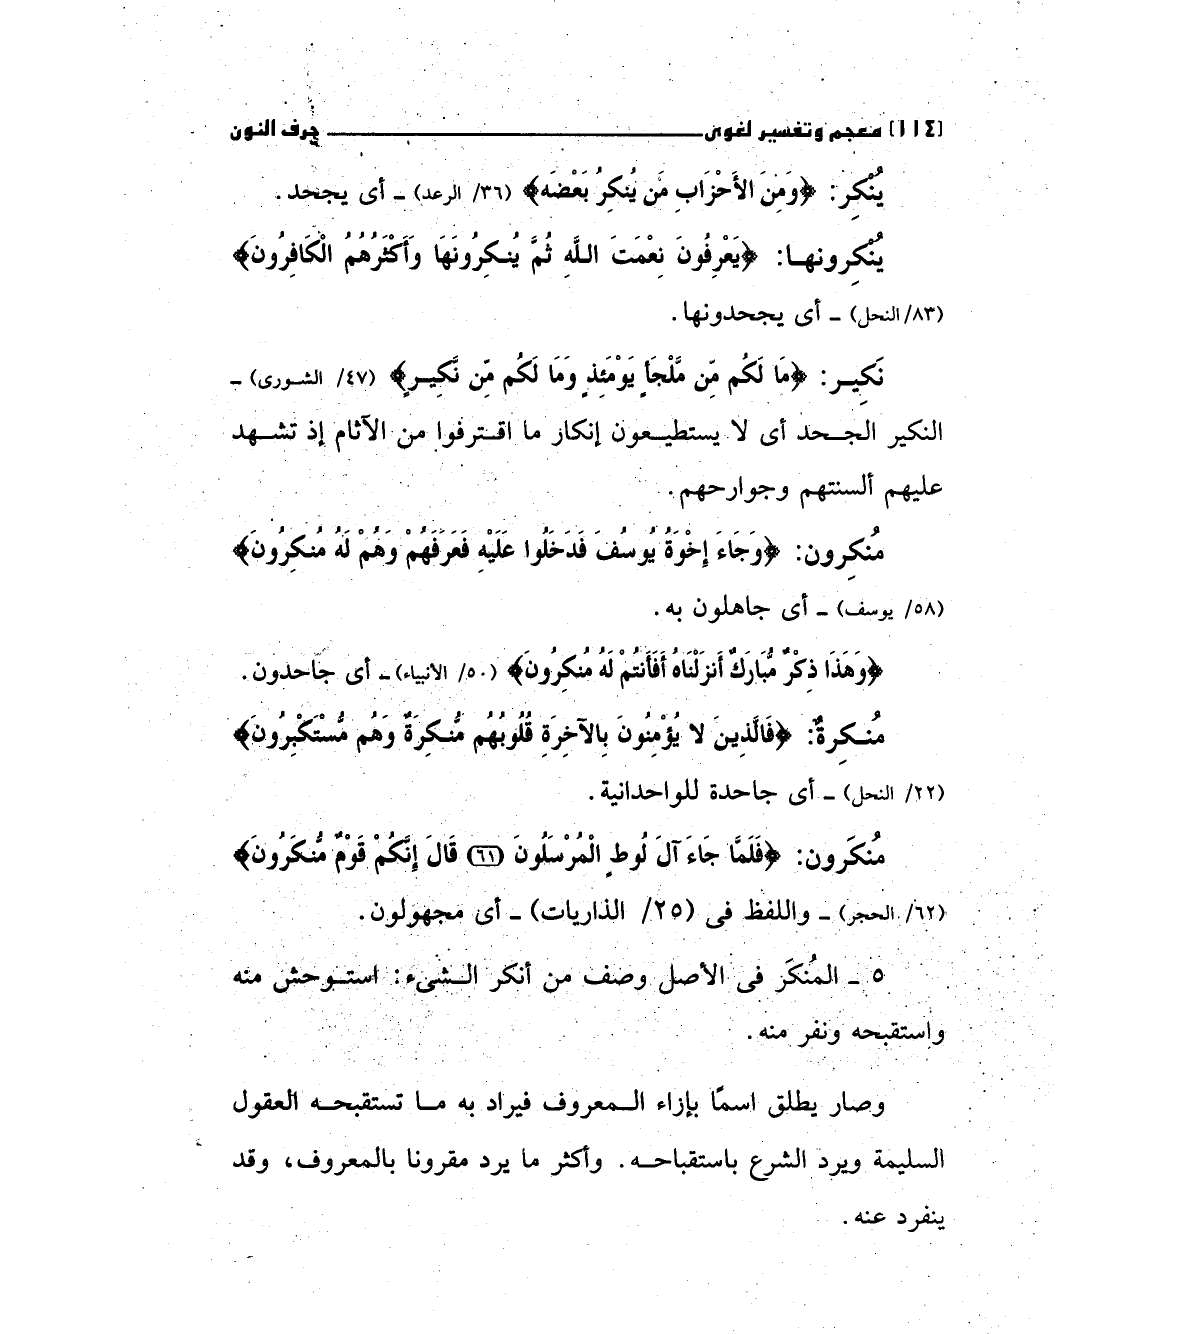 [١١٤] معجم وتفسير لغوى ــــــــ حرف النون
يُنْكِر: ﴿وَمِنَ الأَحْزَابِ مَن يُنكِرُ بَعْضَه﴾ (٣٦/ الرعد) ـ أى يجحد.
يُنْكِرونهـا: ﴿يَعْرِفُونَ نِعْمَتَ اللَّهِ ثُمَّ يُنـكِرُونَهَا وَأَكْثَرُهُمُ الْكَافِرُونَ﴾
(٨٣/ النحل) ـ أى يجحدونها.
نَكِيـر: ﴿مَا لَكُم مِّن مَّلْجَأٍ يَوْمَئِذٍ وَمَا لَكُم مِّن نَّكِيـرٍ﴾ (٤٧/ الشـورى) ـ
النكير الجـحد أى لا يستطيـعون إنكار ما اقـترفوا من الآثام إذ تشـهد
عليهم ألسنتهم وجوارحهم.
مُنكِرون: ﴿وَجَاءَ إِخْوَةُ يُوسُفَ فَدَخَلُوا عَلَيْهِ فَعَرَفَهُمْ وَهُمْ لَهُ مُنكِرُونَ﴾
(٥٨/ يوسف) ـ أى جاهلون به.
﴿وَهَذَا ذِكْرٌ مُّبَارَكٌ أَنزَلْنَاهُ أَفَأَنتُمْ لَهُ مُنكِرُونَ﴾ (٥٠/ الأنبياء) ـ أى جاحدون.
مُنـكِرةٌ: ﴿فَالَّذِينَ لا يُؤْمِنُونَ بِالآخِرَةِ قُلُوبُهُم مُّنـكِرَةٌ وَهُم مُّسْتَكْبِرُونَ﴾
(٢٢/ النحل) ـ أى جاحدة للواحدانية.
مُنكَرون: ﴿فَلَمَّا جَاءَ آلَ لُوطٍ الْمُرْسَلُونَ (٦١) قَالَ إِنَّكُمْ قَوْمٌ مُّنكَرُونَ﴾
(٦٢/ الحجر) ـ واللفظ فى (٢٥/ الذاريات) ـ أى مجهولون.
٥ ـ المُنكَر فى الأصل وصف من أنكر الـشىء: استـوحش منه
واستقبحه ونفر منه.
وصار يطلق اسمًا بإزاء الـمعروف فيراد به مـا تستقبحـه العقول
السليمة ويرد الشرع باستقباحـه. وأكثر ما يرد مقرونا بالمعروف، وقد
ينفرد عنه.